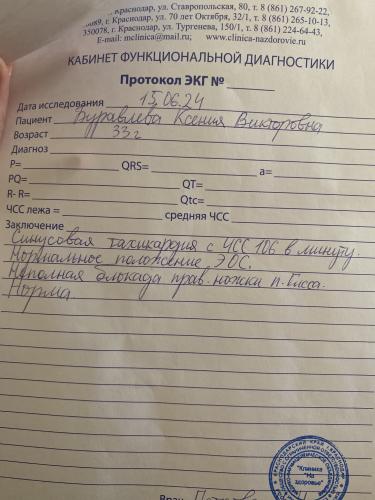 Краснодар, ул. Ставропольская, 80, т. 8 (861) 267-92-22,
г. Краснодар, ул. 70 лет Октября, 32/1, т. 8 (861) 265-10-13,
350078, г. Краснодар, ул. Тургенева, 150/1, т. 8 (861) 224-64-43,
E-mail: mclinica@mail.ru; www.clinica-nazdorovie.ru
КАБИНЕТ ФУНКЦИОНАЛЬНОЙ ДИАГНОСТИКИ
Протокол ЭКГ №
Дата исследования 15.06.24
Пациент Журавлева Ксения Викторовна
Возраст 33 г
Диагноз
P= QRS= a=
PQ= QT=
R- R= Qtc=
ЧСС лежа = средняя ЧСС
Заключение
Синусовая тахикардия с ЧСС 106 в минуту.
Нормальное положение ЭОС.
Неполная блокада прав. ножки п. Гисса.
Норма.
"Клиника
"На
здоровье"
Врач